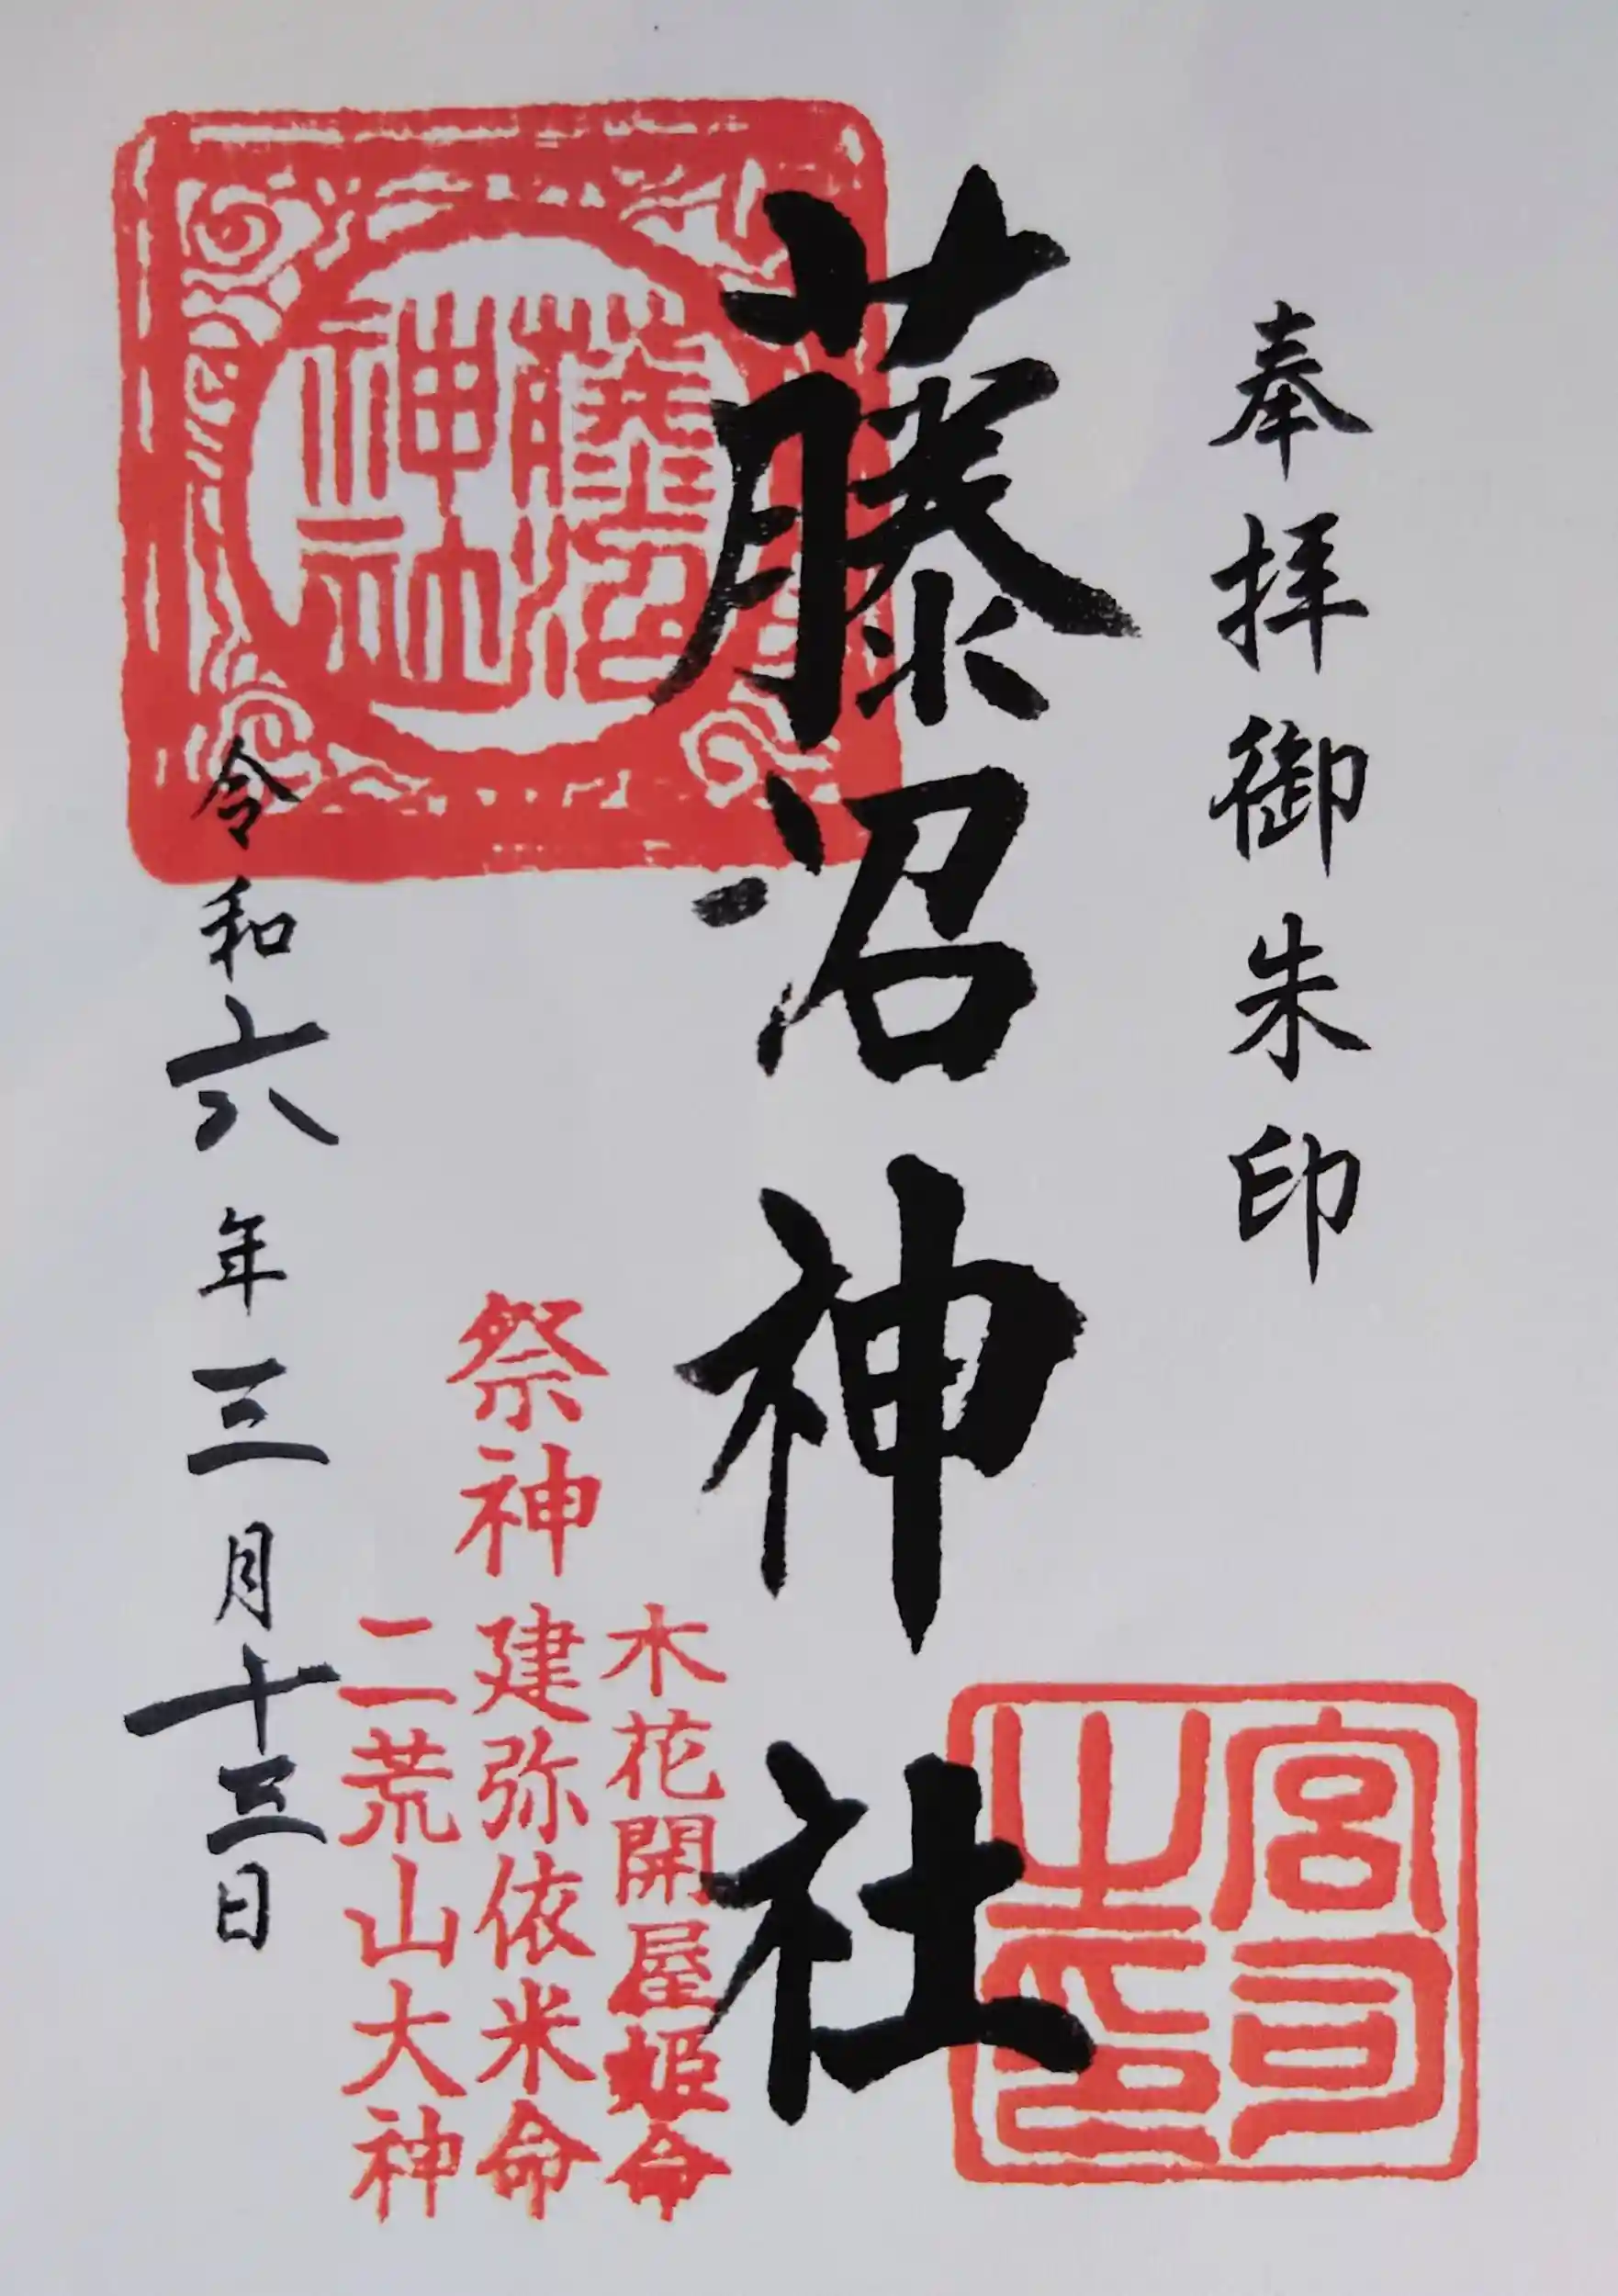 奉拝御朱印
藤沼神社
藤沼
神社
宮司
之印
祭神
木花開屋姫命
建弥依米命
二荒山大神
令和六年三月十三日